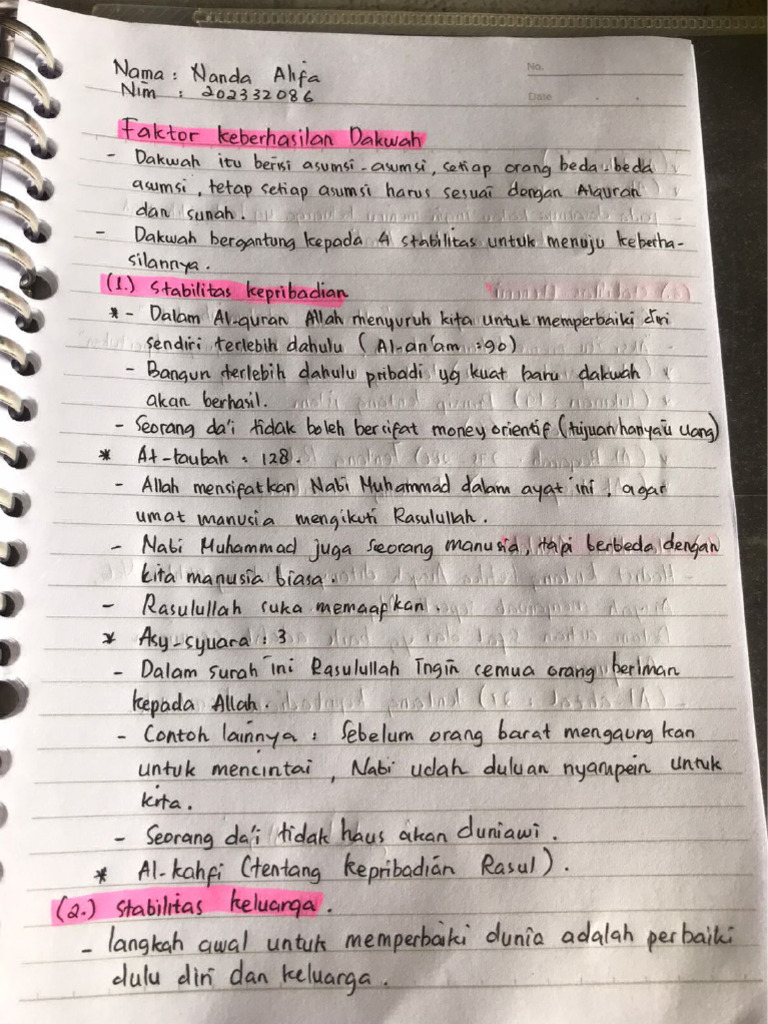 No.
Date
Nama : Nanda Alifa
Nim : 202332086
Faktor keberhasilan Dakwah
- Dakwah itu berisi asumsi-asumsi, setiap orang beda-beda
asumsi, tetap setiap asumsi harus sesuai dengan Alquran
dan sunah.
- Dakwah bergantung kepada 4 stabilitas untuk menuju keberha-
silannya.
(1.) Stabilitas kepribadian
* - Dalam Al-quran Allah menyuruh kita untuk memperbaiki diri
sendiri terlebih dahulu (Al-an'am : 90)
- Bangun terlebih dahulu pribadi yg kuat baru dakwah
akan berhasil.
- Seorang da'i tidak boleh bersifat money orientif (tujuan hanya u uang)
* At-taubah : 128.
- Allah mensifatkan Nabi Muhammad dalam ayat ini, agar
umat manusia mengikuti Rasulullah.
- Nabi Muhammad juga seorang manusia, tapi berbeda dengan
kita manusia biasa.
- Rasulullah suka memaafkan.
* Asy-syuara : 3
- Dalam surah ini Rasulullah Ingin semua orang beriman
kepada Allah.
- Contoh lainnya : Sebelum orang barat mengaungkan
untuk mencintai, Nabi udah duluan nyampein untuk
kita.
- Seorang da'i tidak haus akan duniawi.
* Al-kahfi (tentang kepribadian Rasul).
(2.) Stabilitas keluarga.
- langkah awal untuk memperbaiki dunia adalah perbaiki
dulu diri dan keluarga.